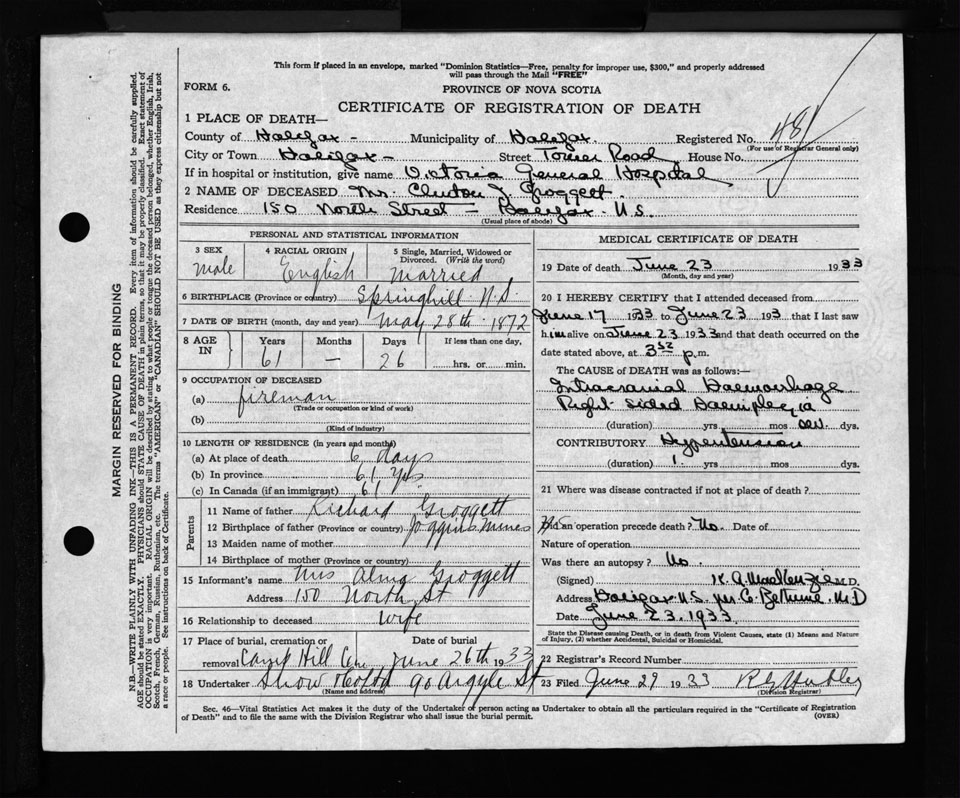 This form if placed in an envelope, marked "Dominion Statistics—Free, penalty for improper use, $300," and properly addressed
will pass through the Mail "FREE"
FORM 6.
PROVINCE OF NOVA SCOTIA
CERTIFICATE OF REGISTRATION OF DEATH
1 PLACE OF DEATH—
County of Halifax – Municipality of Halifax. Registered No. 481
(For use of Registrar General only)
City or Town Halifax – Street Tower Road House No.
If in hospital or institution, give name Victoria General Hospital
2 NAME OF DECEASED Mr. Clinton J. Groggett.
Residence 150 North Street – Halifax. N.S.
(Usual place of abode)
PERSONAL AND STATISTICAL INFORMATION
3 SEX
male
4 RACIAL ORIGIN
English
5 Single, Married, Widowed or
Divorced. (Write the word)
Married
6 BIRTHPLACE (Province or country) Springhill N.S
7 DATE OF BIRTH (month, day and year) May 28th 1872
8 AGE IN
Years Months Days
61 — 26
If less than one day,
hrs. or min.
9 OCCUPATION OF DECEASED
(a) fireman
(Trade or occupation or kind of work)
(b)
(Kind of industry)
10 LENGTH OF RESIDENCE (in years and months)
(a) At place of death 6 days
(b) In province 61 yrs
(c) In Canada (if an immigrant) 61
Parents
11 Name of father Richard Groggett
12 Birthplace of father (Province or country) Joggins Mines
13 Maiden name of mother
14 Birthplace of mother (Province or country)
15 Informant's name Mrs Alma Groggett
Address 150 North St
16 Relationship to deceased wife
17 Place of burial, cremation or Date of burial
removal Camp Hill Cem June 26th 1933
18 Undertaker Snow & Co Ltd 90 Argyle St
(Name and address)
MEDICAL CERTIFICATE OF DEATH
19 Date of death June 23 1933
(Month, day and year)
20 I HEREBY CERTIFY that I attended deceased from
June 17 1933 to June 23 193 that I last saw
him alive on June 23 1933 and that death occurred on the
date stated above, at 3 p.m.
The CAUSE of DEATH was as follows:—
Intracranial Haemorrhage
Right sided Haemiplegia
(duration) yrs mos dys.
CONTRIBUTORY Hypertension
(duration) 1. yrs mos dys.
21 Where was disease contracted if not at place of death?
Did an operation precede death? No. Date of
Nature of operation
Was there an autopsy? No.
(Signed) K. A. MacKenzie M.D.
Address Halifax N.S. per C. Bethune. M D
Date June 23. 1933.
State the Disease causing Death, or in death from Violent Causes, state (1) Means and Nature
of Injury, (2) whether Accidental, Suicidal or Homicidal.
22 Registrar's Record Number
23 Filed June 29 1933
(Division Registrar)
Sec. 46—Vital Statistics Act makes it the duty of the Undertaker or person acting as Undertaker to obtain all the particulars required in the "Certificate of Registration
of Death" and to file the same with the Division Registrar who shall issue the burial permit.
(OVER)
MARGIN RESERVED FOR BINDING
N.B.—WRITE PLAINLY WITH UNFADING INK—THIS IS A PERMANENT RECORD. Every item of information should be carefully supplied.
AGE should be stated EXACTLY. PHYSICIANS should STATE CAUSE OF DEATH in plain terms, so that it may be properly classified. Exact statement of
OCCUPATION is very important. RACIAL ORIGIN will be described by stating to what people or tongue the deceased person belonged, whether English, Irish,
Scotch, French, German, Russian, Ruthenian, etc. The terms "AMERICAN" or "CANADIAN" SHOULD NOT BE USED as they express citizenship but not
a race or people. See instructions on back of Certificate.